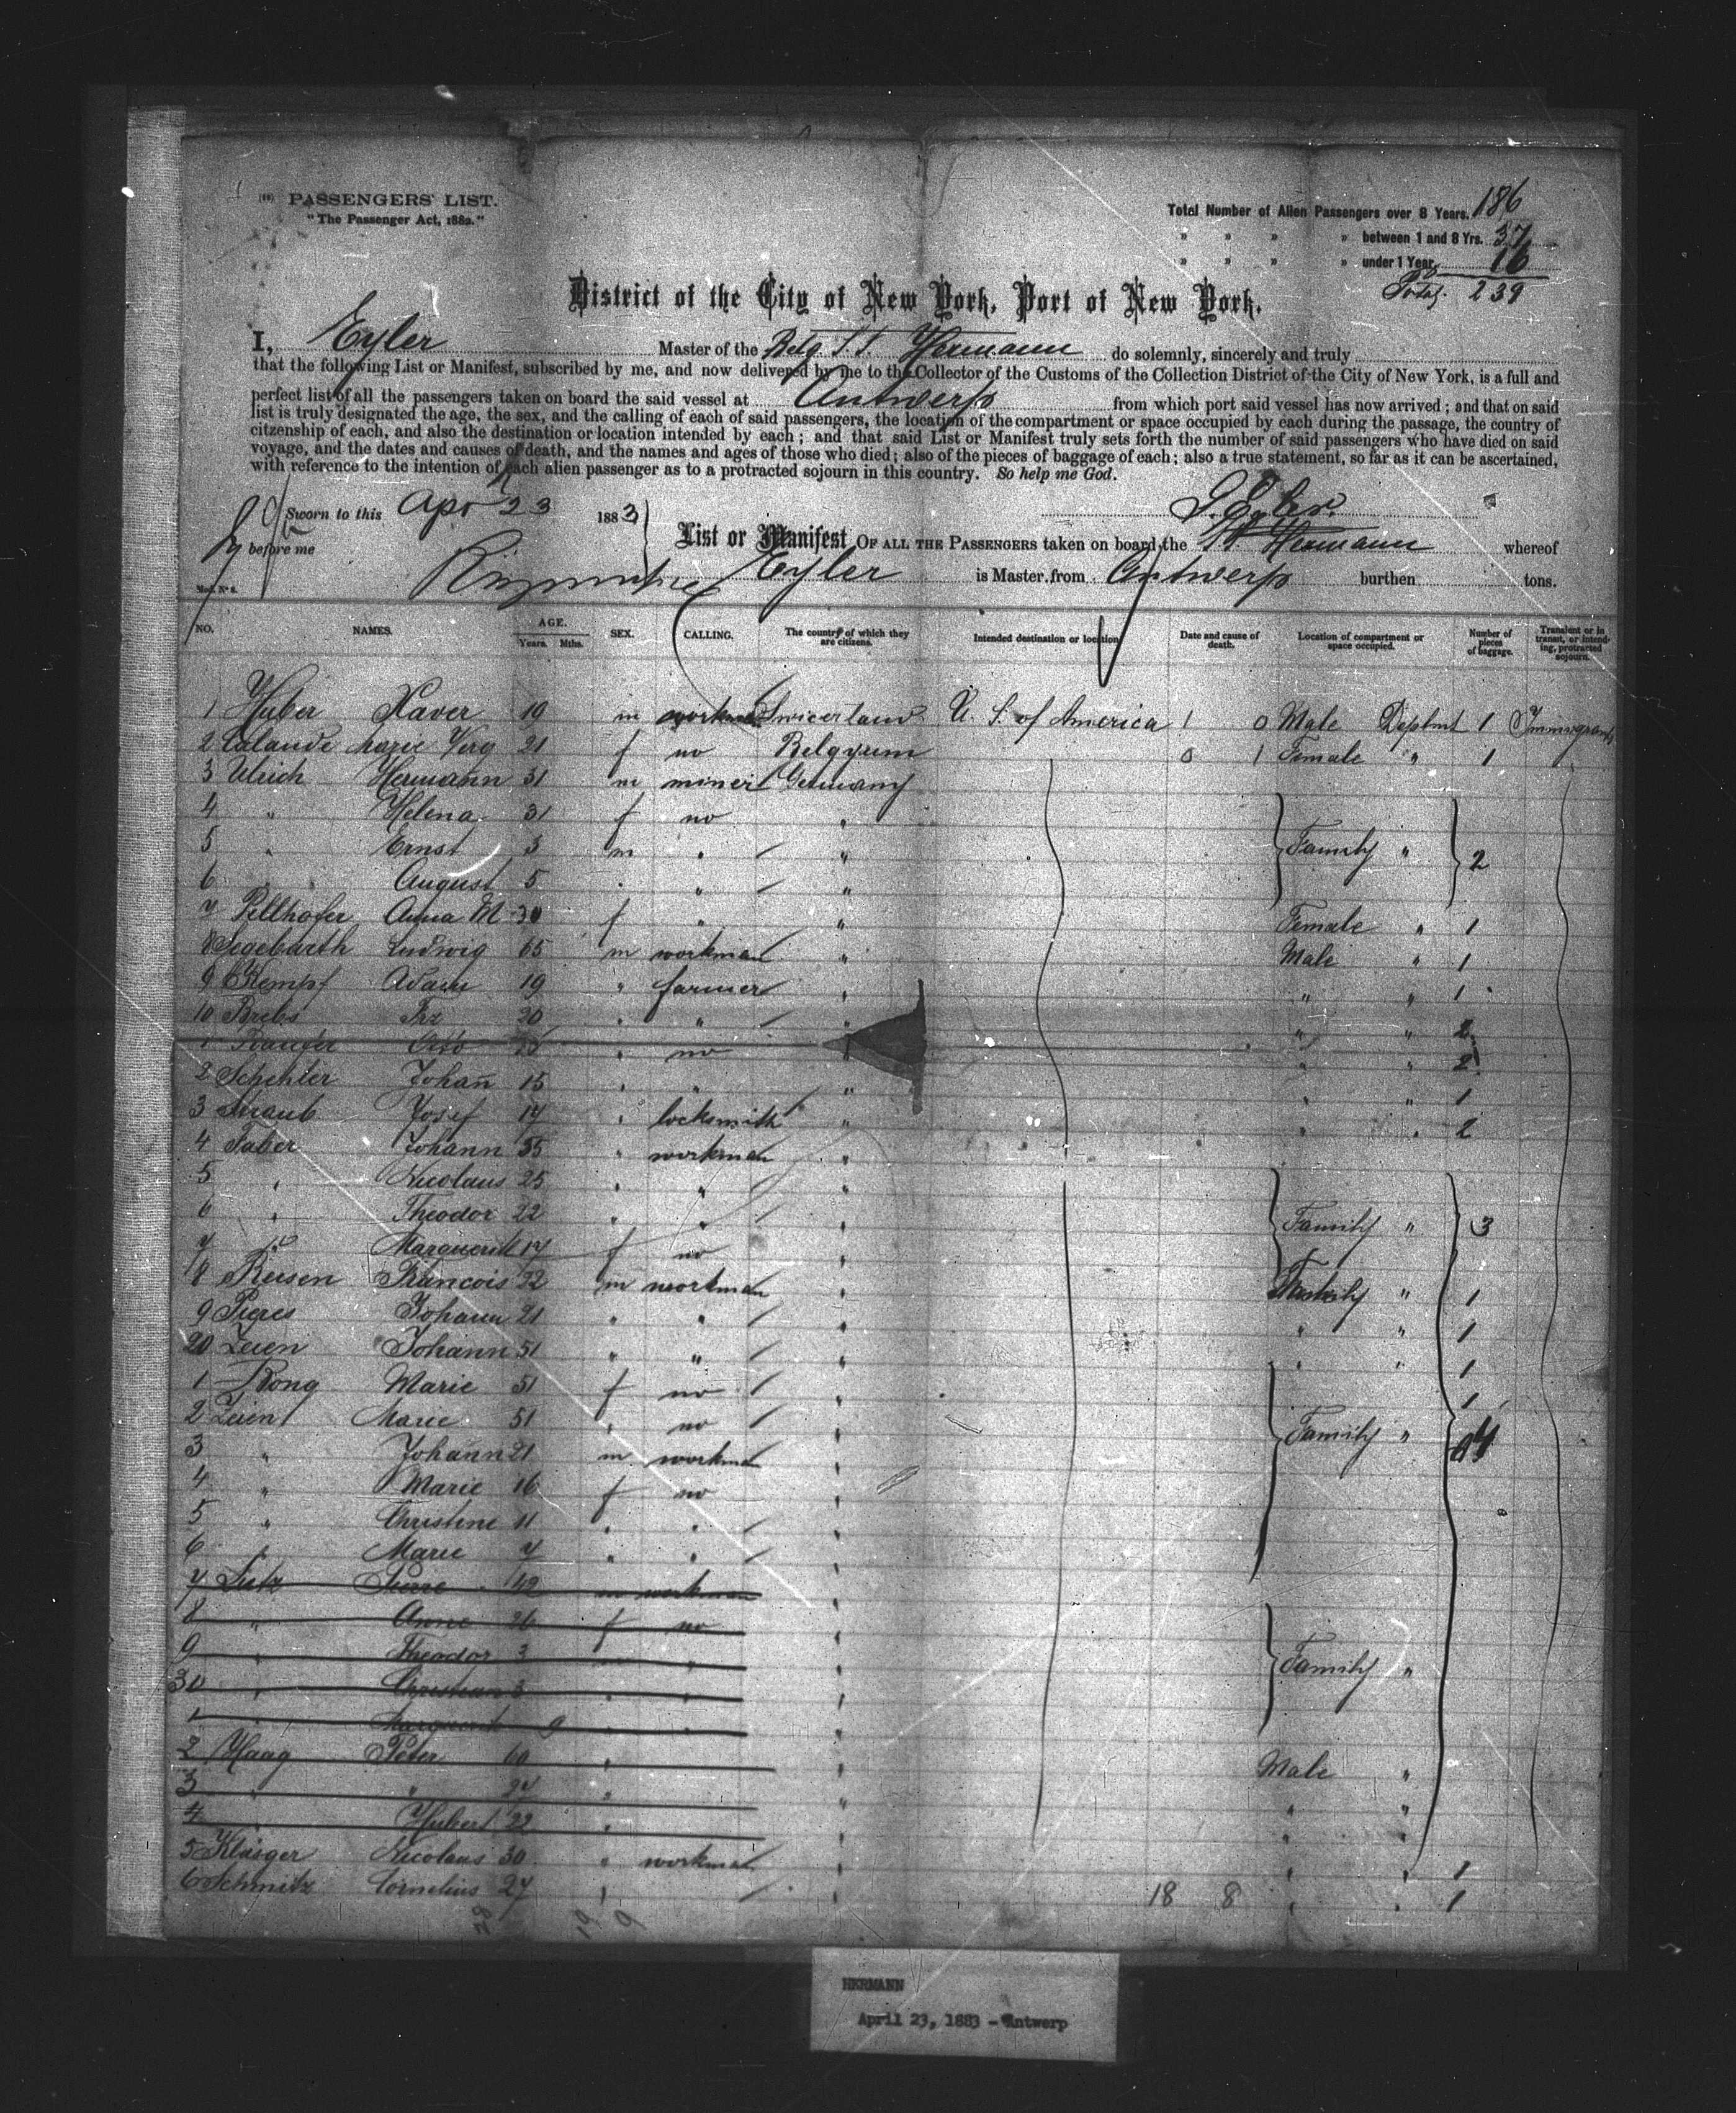 PASSENGERS' LIST.
"The Passenger Act, 1882."
Total Number of Alien Passengers over 8 Years. 186
" " " " between 1 and 8 Yrs. 37
" " " " under 1 Year. 16
Total. 239
District of the City of New York, Port of New York.
I, Eyler Master of the Belg. S.S. Hermann do solemnly, sincerely and truly
that the following List or Manifest, subscribed by me, and now delivered by me to the Collector of the Customs of the Collection District of the City of New York, is a full and
perfect list of all the passengers taken on board the said vessel at Antwerp from which port said vessel has now arrived; and that on said
list is truly designated the age, the sex, and the calling of each of said passengers, the location of the compartment or space occupied by each during the passage, the country of
citzenship of each, and also the destination or location intended by each; and that said List or Manifest truly sets forth the number of said passengers who have died on said
voyage, and the dates and causes of death, and the names and ages of those who died; also of the pieces of baggage of each; also a true statement, so far as it can be ascertained,
with reference to the intention of each alien passenger as to a protracted sojourn in this country. So help me God.
Sworn to this Apr 23 1883
Eyler
before me
List or Manifest OF ALL THE PASSENGERS taken on board the Hermann whereof
Eyler is Master, from Antwerp burthen tons.
Mod. No 6.
NO. NAMES. AGE. Years. Mths. SEX. CALLING. The country of which they are citizens. Intended destination or location Date and cause of death. Location of compartment or space occupied. Number of pieces of baggage. Transient or in transit, or intending, protracted sojourn.
1 Huber Xaver 19 m workman Swicerland U. S. of America 1 0 Male Deptmt 1 Immigrants
2 Marie 21 f no Belgyum 0 1 Female " 1
3 Ulrich Hermann 31 m miner Germany
4 " Helena 31 f no "
5 " Ernst 3 m " " Family " 2
6 " August 5 " " "
7 Pellhofer Anna M 30 f " " Female " 1
8 Segebarth Ludwig 65 m workman " Male " 1
9 Kempf Adam 19 " farmer " " " 1
10 Brebs 20 " " " " " 2
1 Otto " no " " " 2
2 Schehler Johan 15 " " " " " 1
3 Straub Josef 17 " locksmith " " " 2
4 Faber Johann 55 " workman "
5 " Nicolaus 25 " " "
6 " Theodor 22 " " " Family " 3
7 " Marguerit 17 f no "
8 Reisen Francois 22 m workman " " 1
9 Pieres Johann 21 " " " " " 1
20 Zeien Johann 51 " " " " " 1
1 Rong Marie 51 f no " 1
2 Zeien Marie 51 " no " Family " 4
3 " Johann 21 m workman "
4 " Marie 16 f no "
5 " Christine 11 " " "
6 " Marie 7 " " "
7 Lutz Pierre 42 m workman "
8 " Anne 26 f no "
9 " Theodor 3 " " Family "
30 " Christian 3 " " "
1 " Marguerit 9 " " "
2 Haag Peter 60 " " Male "
3 " " 24 " " " "
4 " Hubert 22 " " "
5 Klasger Nicolaus 30 " workman " " " 1
6 Schmitz Cornelius 27 " " 18 8 " " 1
HERMANN
April 23, 1883 - Antwerp